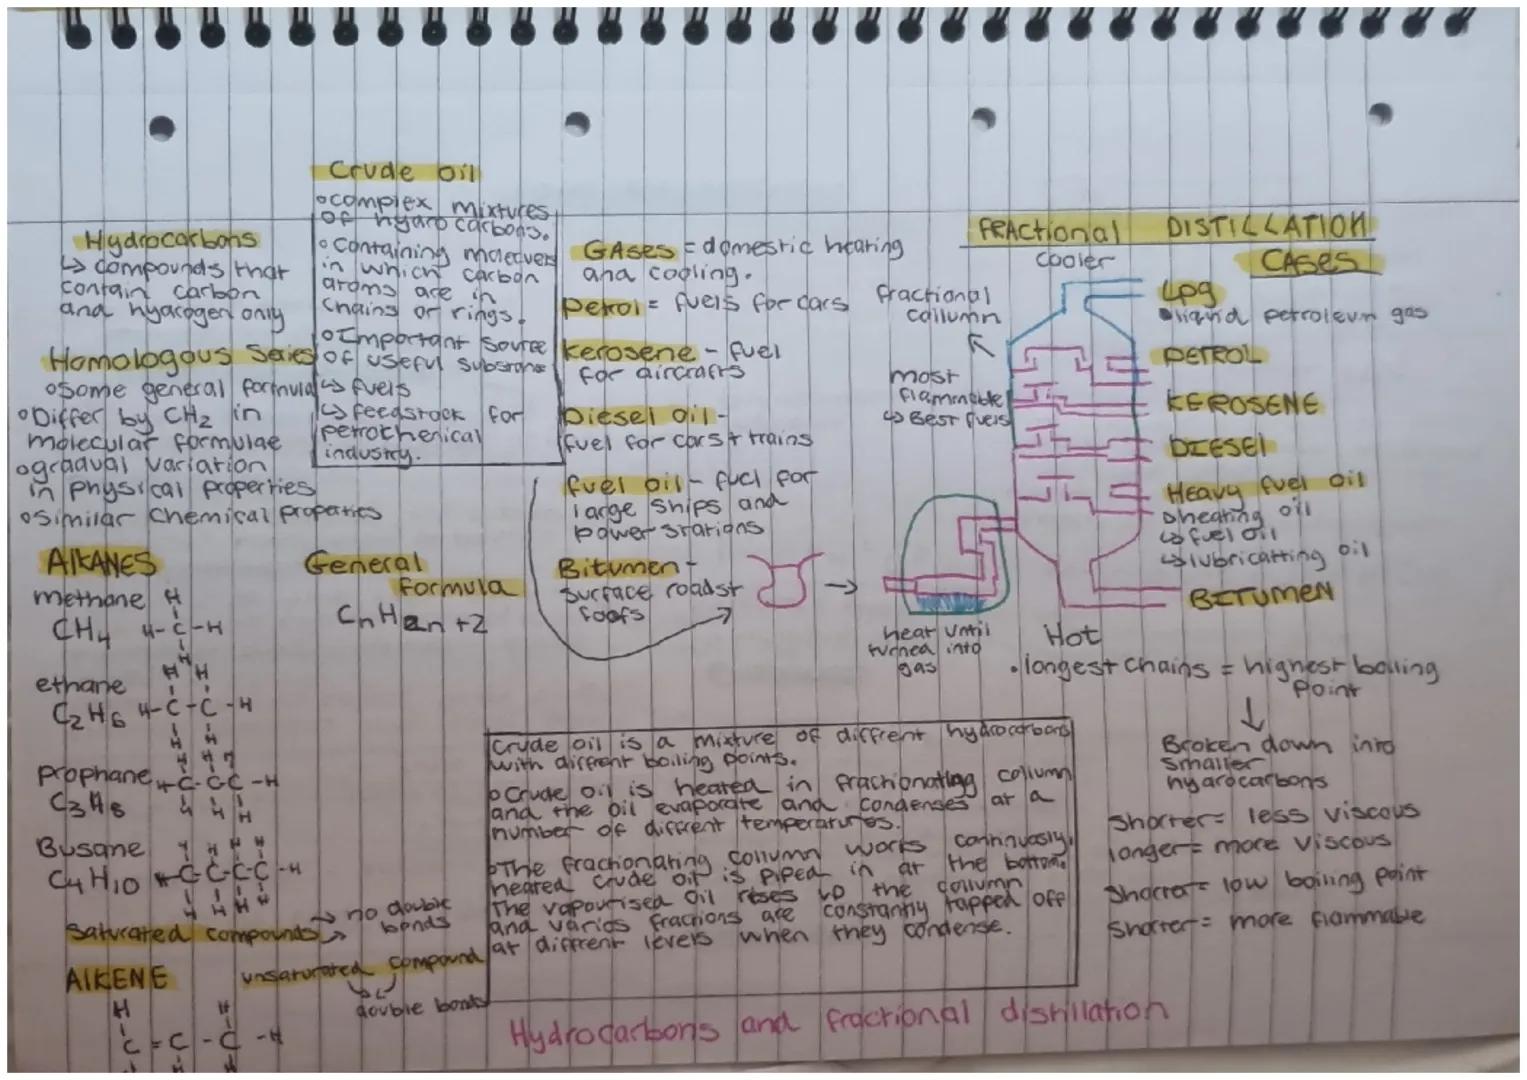 Crude oil
○complex mixtures
of hydrocarbons.
○Containing molecules
in which carbon
atoms are in
chains or rings.
○Important source
of useful substans
↳ fuels
↳ feedstock for
petrochemical
industry.
Hydrocarbons
↳ compounds that
contain carbon
and hydrogen only
Homologous Series
○some general formula
○Differ by CH2 in
molecular formulae
○gradual variation
in physical properties
○similar chemical properties
GAses = domestic heating
and cooling.
petrol = fuels for cars
kerosene - fuel
for aircrafts
Diesel oil -
fuel for cars + trains
fuel oil - fuel for
large ships and
power stations
Bitumen -
surface roads +
roofs
fRActional DISTILLATION
cooler
CASES
fractional
collumn
most
flammable
↳ Best fuels
Lpg
liquid petroleum gas
PETROL
KEROSENE
DIESEL
Heavy fuel oil
heating oil
↳ fuel oil
↳ lubricatting oil
BITUMEN
heat until
turned into
gas
Hot
• longest chains = highest boiling
point
↓
Broken down into
smaller
hydrocarbons
shorter = less viscous
longer = more viscous
shorter = low boiling point
shorter = more flammable
AlKANES
methane
CH4
H
H-C-H
H
ethane
C2H6
H H
H-C-C-H
H H
Prophane
C3H8
H H H
H-C-C-C-H
H H H
Busane
C4H10
H H H H
H-C-C-C-C-H
H H H H
General
formula
CnH2n+2
Saturated compounds → no double
bonds
AlKENE
unsaturated compound
↳ double bonds
H H
C=C-C-H
H H
Crude oil is a mixture of diffrent hydrocarbons
with diffrent boiling points.
○Crude oil is heated in fractionating collumn
and the oil evaporate and condenses at a
number of diffrent temperatures.
○The fractionating collumn works continuosly,
heated crude oil is piped in at the bottom.
The vapourised oil rises up the collumn
and varios fractions are constantly tapped off
at diffrent levels when they condense.
Hydrocarbons and fractional distillation